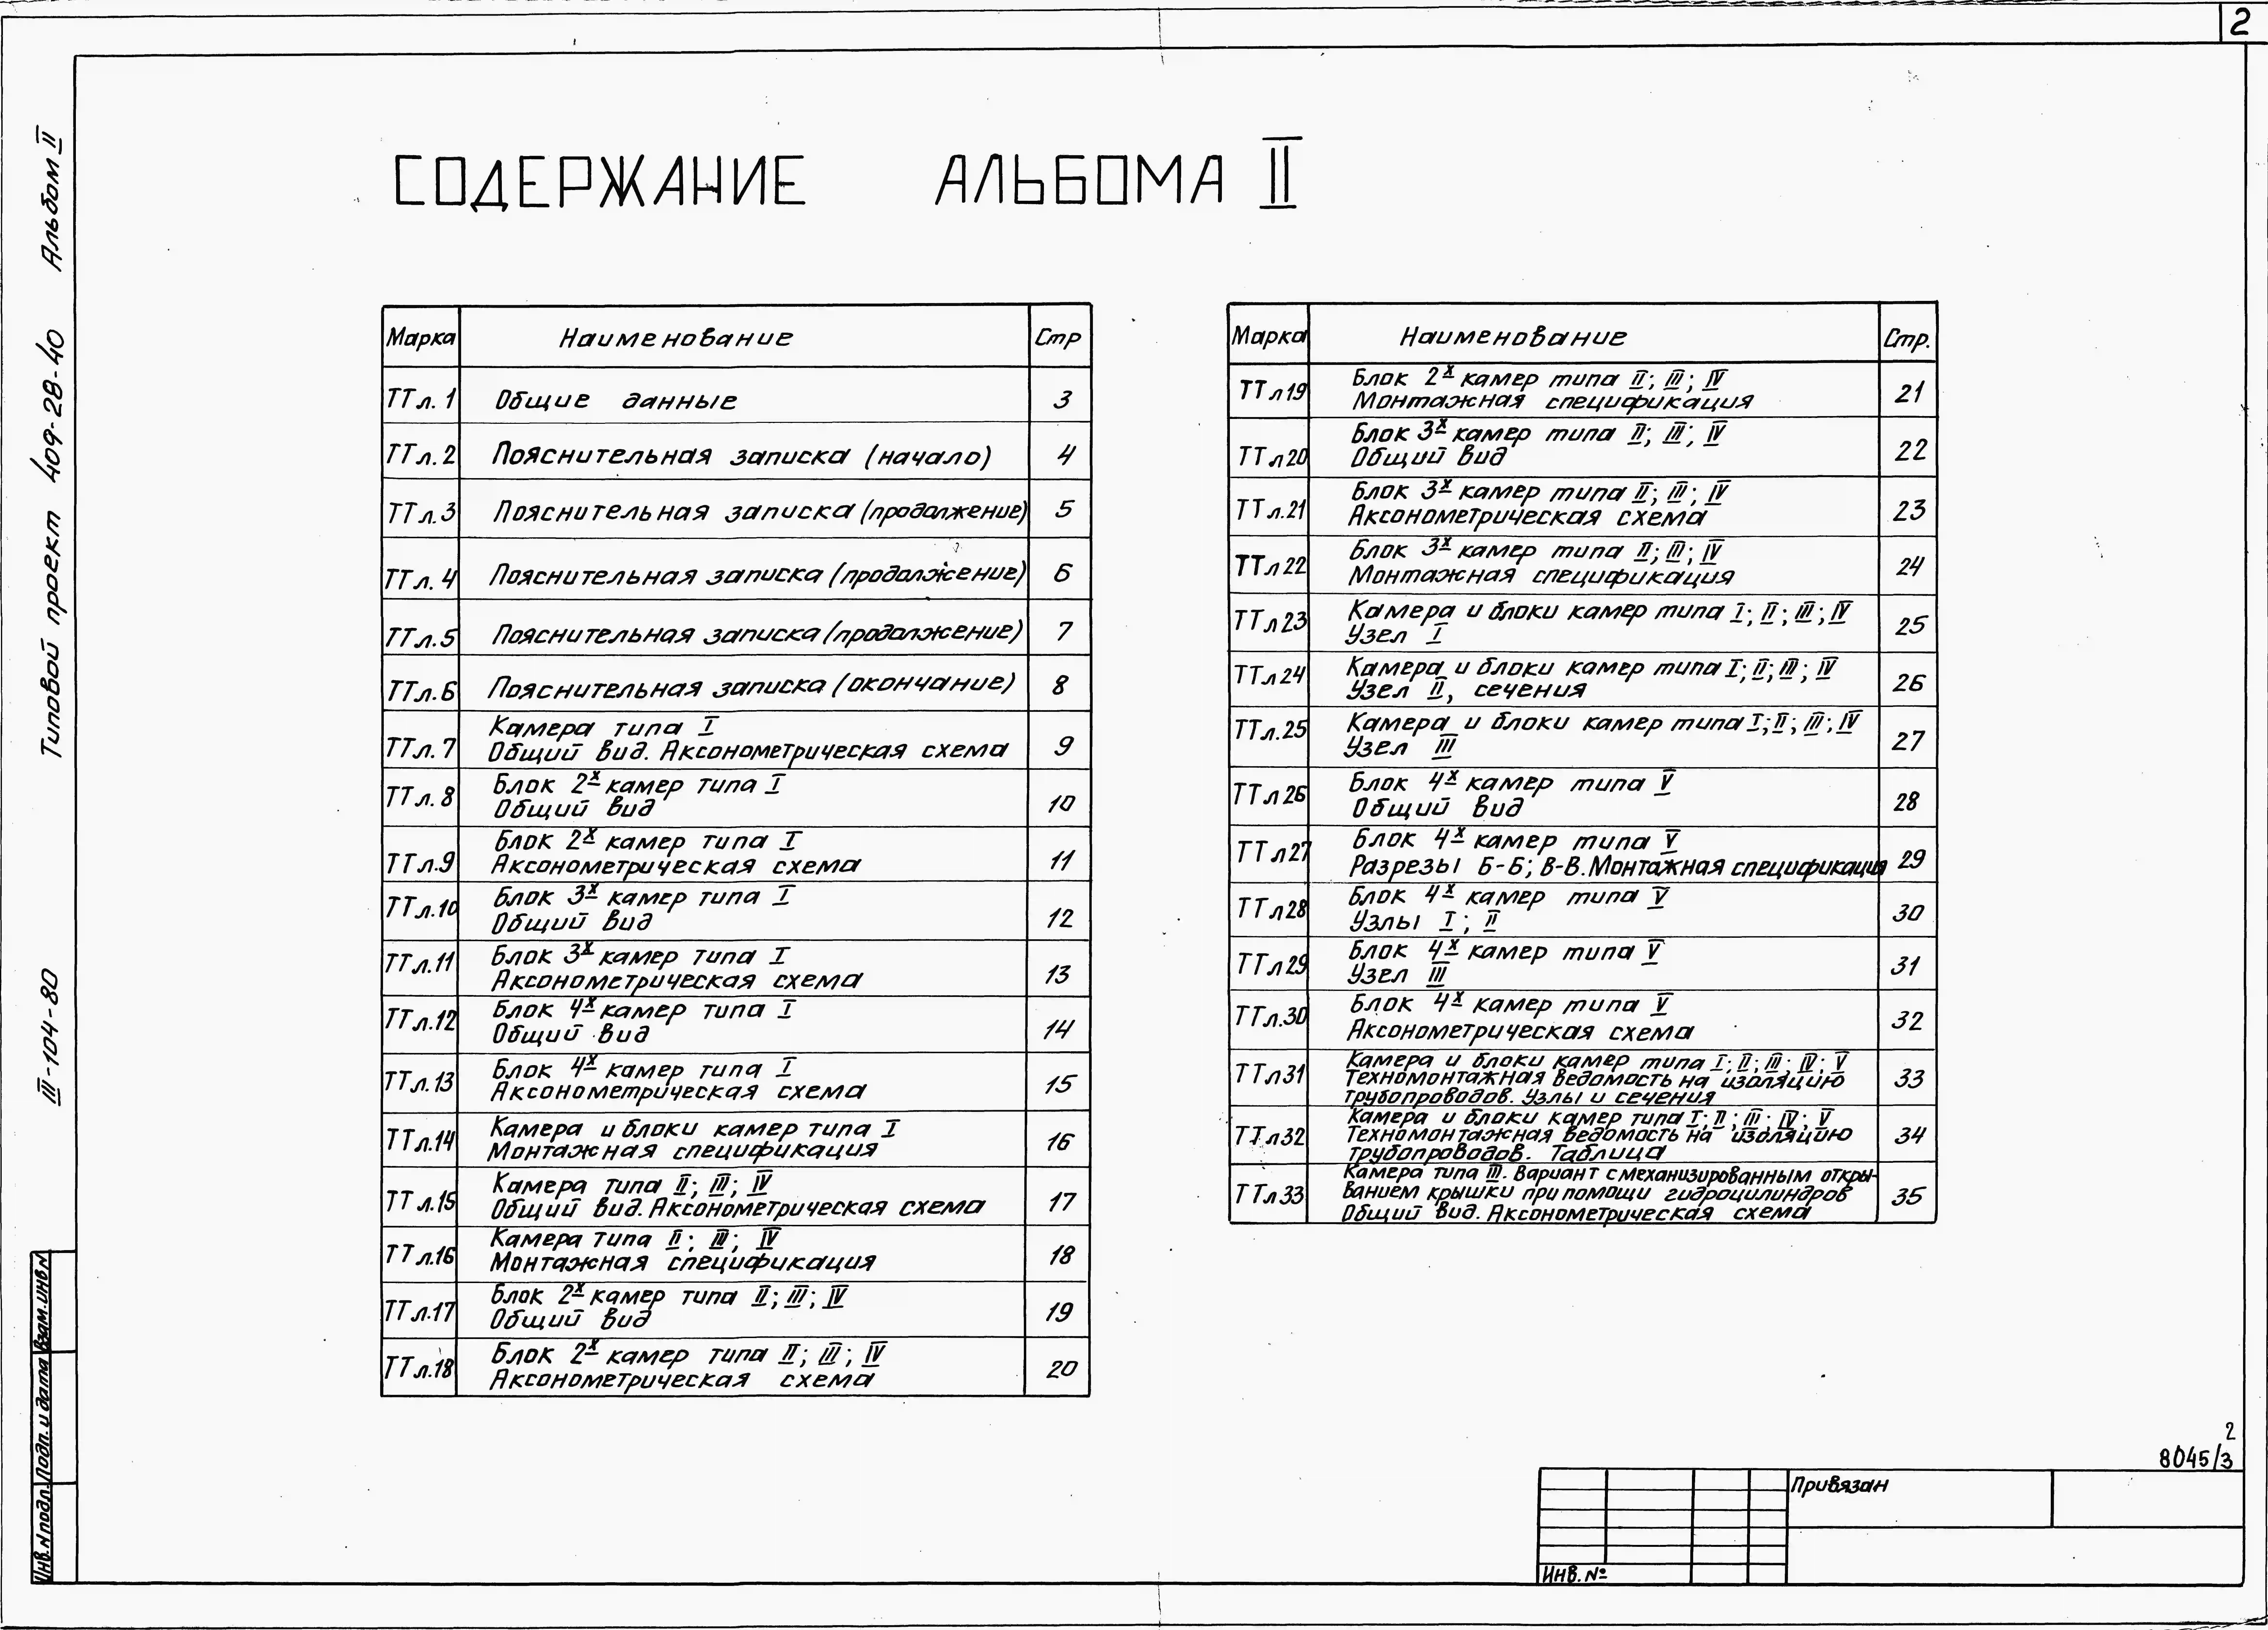 2
Типовой проект 409-28-40 Альбом II
III-104-80
СОДЕРЖАНИЕ АЛЬБОМА II
Марка Наименование Стр
ТТ л.1 Общие данные 3
ТТ л.2 Пояснительная записка (начало) 4
ТТ л.3 Пояснительная записка (продолжение) 5
ТТ л.4 Пояснительная записка (продолжение) 6
ТТ л.5 Пояснительная записка (продолжение) 7
ТТ л.6 Пояснительная записка (окончание) 8
Камера типа I
ТТ л.7 Общий вид. Аксонометрическая схема 9
Блок 2х камер типа I
ТТ л.8 Общий вид 10
Блок 2х камер типа I
ТТ л.9 Аксонометрическая схема 11
Блок 3х камер типа I
ТТ л.10 Общий вид 12
Блок 3х камер типа I
ТТ л.11 Аксонометрическая схема 13
Блок 4х камер типа I
ТТ л.12 Общий вид 14
Блок 4х камер типа I
ТТ л.13 Аксонометрическая схема 15
Камера и блоки камер типа I
ТТ л.14 Монтажная спецификация 16
Камера типа II; III; IV
ТТ л.15 Общий вид. Аксонометрическая схема 17
Камера типа II; III; IV
ТТ л.16 Монтажная спецификация 18
Блок 2х камер типа II; III; IV
ТТ л.17 Общий вид 19
Блок 2х камер типа II; III; IV
ТТ л.18 Аксонометрическая схема 20
Марка Наименование Стр.
Блок 2х камер типа II; III; IV
ТТ л19 Монтажная спецификация 21
Блок 3х камер типа II; III; IV
ТТ л20 Общий вид 22
Блок 3х камер типа II; III; IV
ТТ л.21 Аксонометрическая схема 23
Блок 3х камер типа II; III; IV
ТТ л22 Монтажная спецификация 24
Камера и блоки камер типа I; II; III; IV
ТТ л23 Узел I 25
Камера и блоки камер типа I; II; III; IV
ТТ л24 Узел II, сечения 26
Камера и блоки камер типа I; II; III; IV
ТТ л.25 Узел III 27
Блок 4х камер типа V
ТТ л26 Общий вид 28
Блок 4х камер типа V
ТТ л27 Разрезы Б-Б; В-В. Монтажная спецификация 29
Блок 4х камер типа V
ТТ л28 Узлы I; II 30
Блок 4х камер типа V
ТТ л29 Узел III 31
Блок 4х камер типа V
ТТ л.30 Аксонометрическая схема 32
Камера и блоки камер типа I; II; III; IV; V
ТТ л31 Техномонтажная ведомость на изоляцию 33
трубопроводов. Узлы и сечения
Камера и блоки камер типа I; II; III; IV; V
ТТ л32 Техномонтажная ведомость на изоляцию 34
трубопроводов. Таблица
Камера типа III. Вариант с механизированным откры-
ТТ л33 ванием крышки при помощи гидроцилиндров 35
Общий вид. Аксонометрическая схема
Инв.N подл. Подп. и дата Взам.инв.N
2
8045/3
Привязан
Инв. №